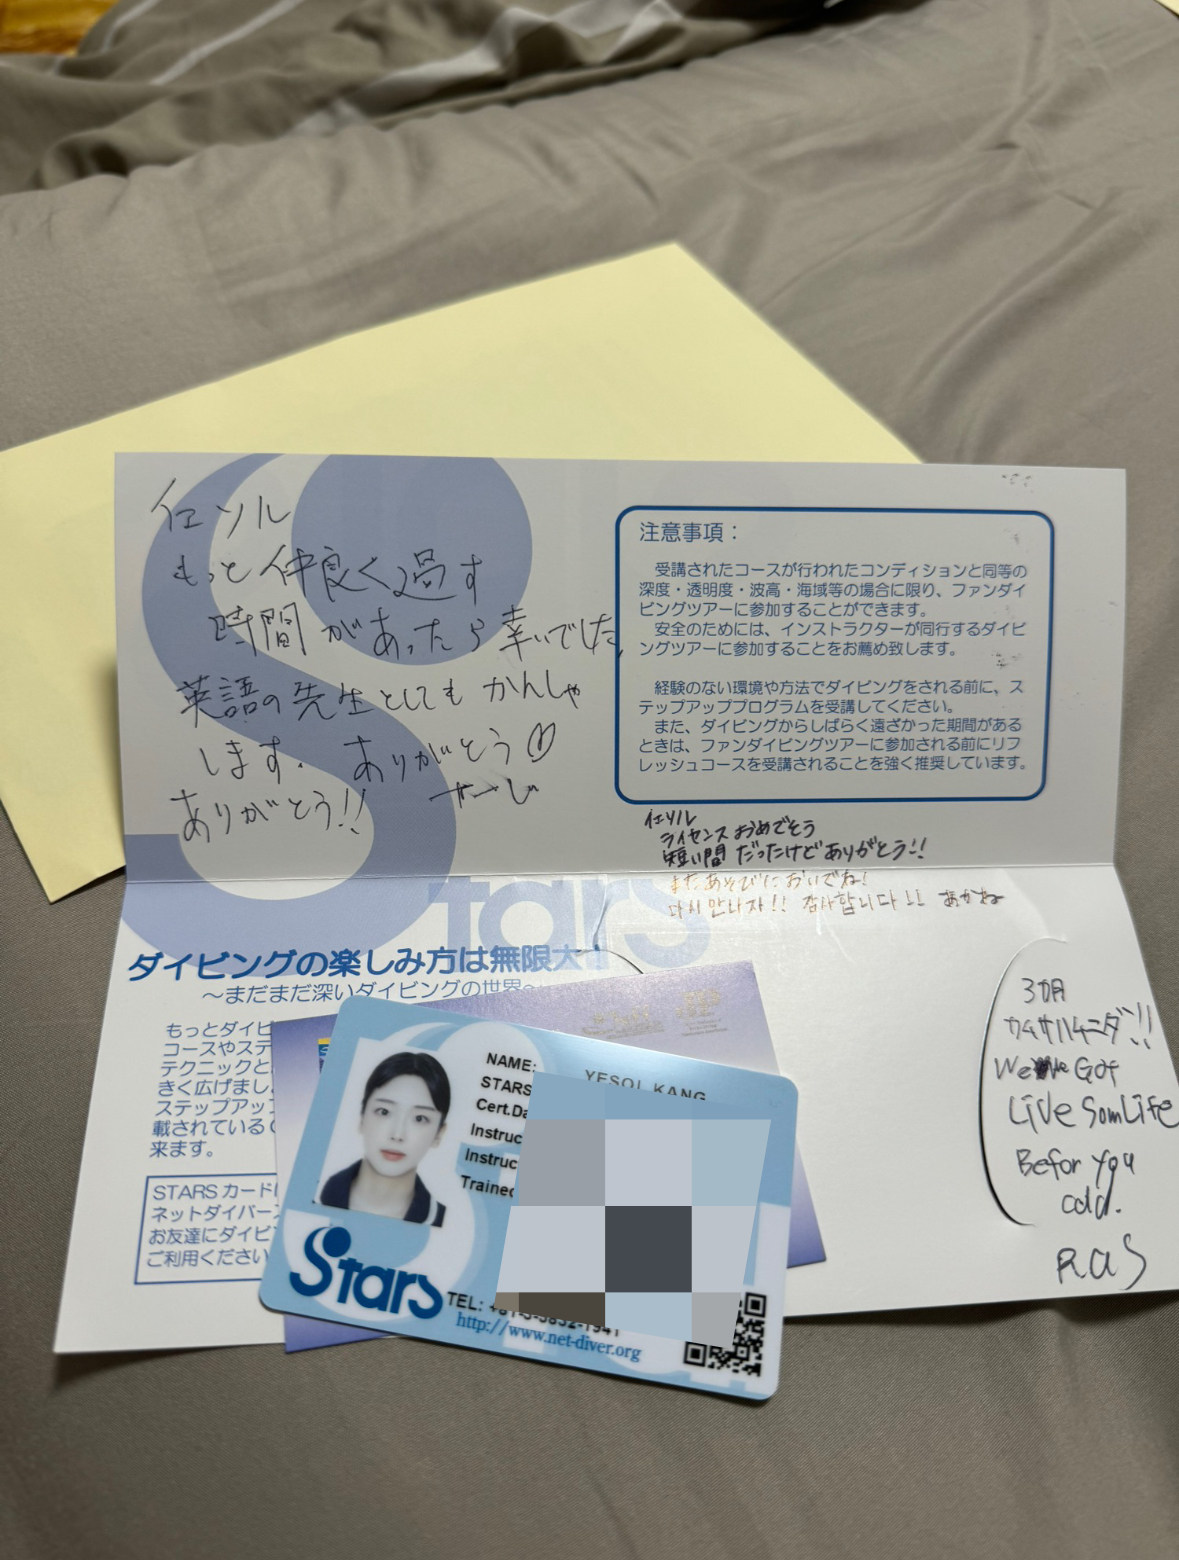 イェソル
もっと仲良く過す
時間があったら幸いでした
英語の先生としてもかんしゃ
します. ありがとう
ありがとう!!
注意事項：
受講されたコースが行われたコンディションと同等の
深度・透明度・波高・海域等の場合に限り、ファンダイ
ビングツアーに参加することができます。
安全のためには、インストラクターが同行するダイビ
ングツアーに参加することをお薦め致します。
経験のない環境や方法でダイビングをされる前に、ス
テップアッププログラムを受講してください。
また、ダイビングからしばらく遠ざかった期間がある
ときは、ファンダイビングツアーに参加される前にリフ
レッシュコースを受講されることを強く推奨しています。
イェソル
ライセンスおめでそう
短い間だったけどありがとう!!
またあそびにおいでね!
다시 만나자!! 감사합니다!! あかね
Stars
ダイビングの楽しみ方は無限大！
〜まだまだ深いダイビングの世界〜
もっとダイビ
コースやステ
テクニックと
きく広げまし
ステップアッ
載されている
来ます。
STARSカード
ネットダイバー
お友達にダイビ
ご利用ください
3カ月
カムサハムニダ!!
We've Got
Live Som Life
Befor you
cold.
RAS
NAME: YESOL KANG
STARS
Cert.Da
Instruc
Instruc
Trained
Stars
TEL: +81-3-5832-1941
http://www.net-diver.org